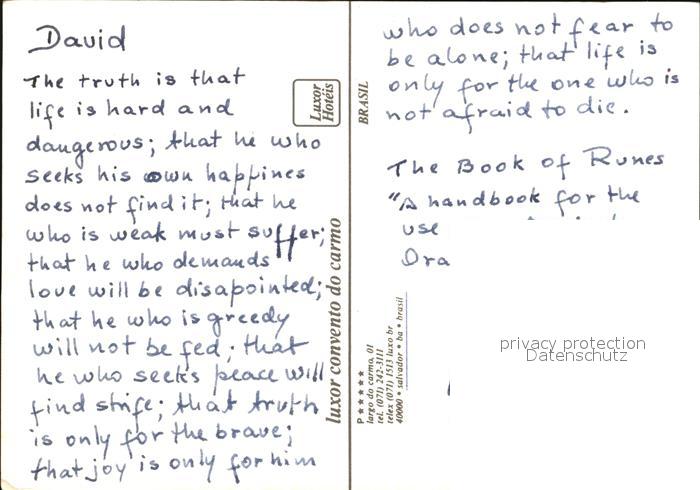 David
The truth is that
life is hard and
dangerous; that he who
seeks his own happines
does not find it; that he
who is weak must suffer;
that he who demands
love will be disapointed;
that he who is greedy
will not be fed; that
he who seeks peace will
find strife; that truth
is only for the brave;
that joy is only for him
who does not fear to
be alone; that life is
only for the one who is
not afraid to die.
The Book of Runes
"A handbook for the
use
Dra
Luxor
Hotéis
BRASIL
luxor convento do carmo
P ★★★★★
largo do carmo, 01
tel. (071) 242-3111
telex (071) 1513 luxo br
40000 • salvador • ba • brasil
privacy protection
Datenschutz